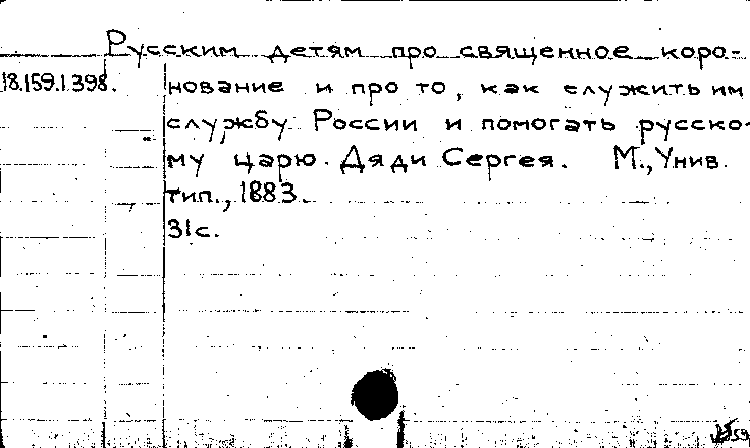 Русским детям про священное коро-
18.159.1.398. нование и про то, как служить им
службу России и помогать русско-
му царю. Дяди Сергея. М., Унив.
тип., 1883.
31с.